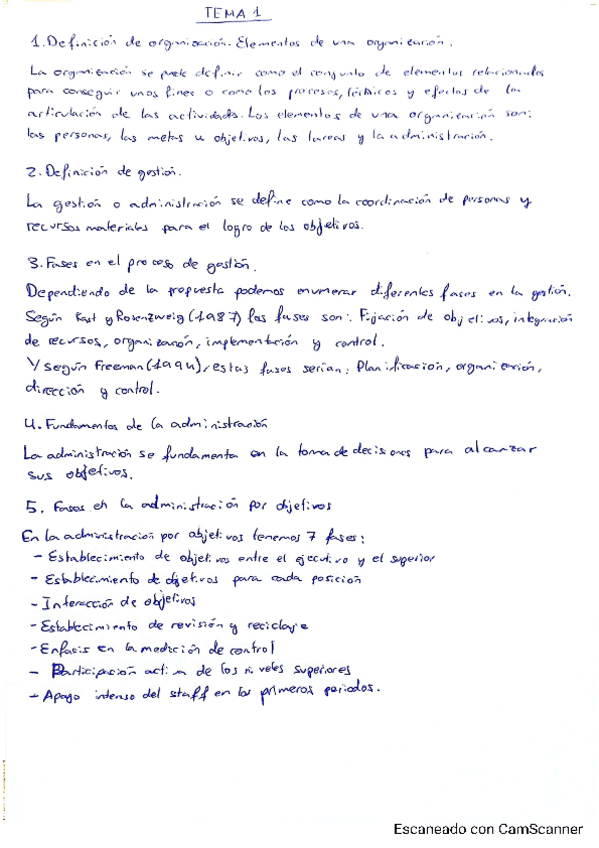 TEMA 1
1. Definición de organización. Elementos de una organización.
La organización se puede definir como el conjunto de elementos relacionados
para conseguir unos fines o como los procesos, técnicos y efectos de la
articulación de las actividades. Los elementos de una organización son:
las personas, las metas u objetivos, las tareas y la administración.
2. Definición de gestión.
La gestión o administración se define como la coordinación de personas y
recursos materiales para el logro de los objetivos.
3. Fases en el proceso de gestión.
Dependiendo de la propuesta podemos enumerar diferentes fases en la gestión.
Según Kast y Rosenzweig (1987) las fases son: Fijación de objetivos, integración
de recursos, organización, implementación y control.
Y según Freeman (1994), estas fases serían: Planificación, organización,
dirección y control.
4. Fundamentos de la administración
La administración se fundamenta en la toma de decisiones para alcanzar
sus objetivos.
5. Fases en la administración por objetivos
En la administración por objetivos tenemos 7 fases:
- Establecimiento de objetivos entre el ejecutivo y el superior
- Establecimiento de objetivos para cada posición
- Interacción de objetivos
- Establecimiento de revisión y reciclaje
- Enfasis en la medición de control
- Participación activa de los niveles superiores
- Apoyo intenso del staff en los primeros periodos.
Escaneado con CamScanner